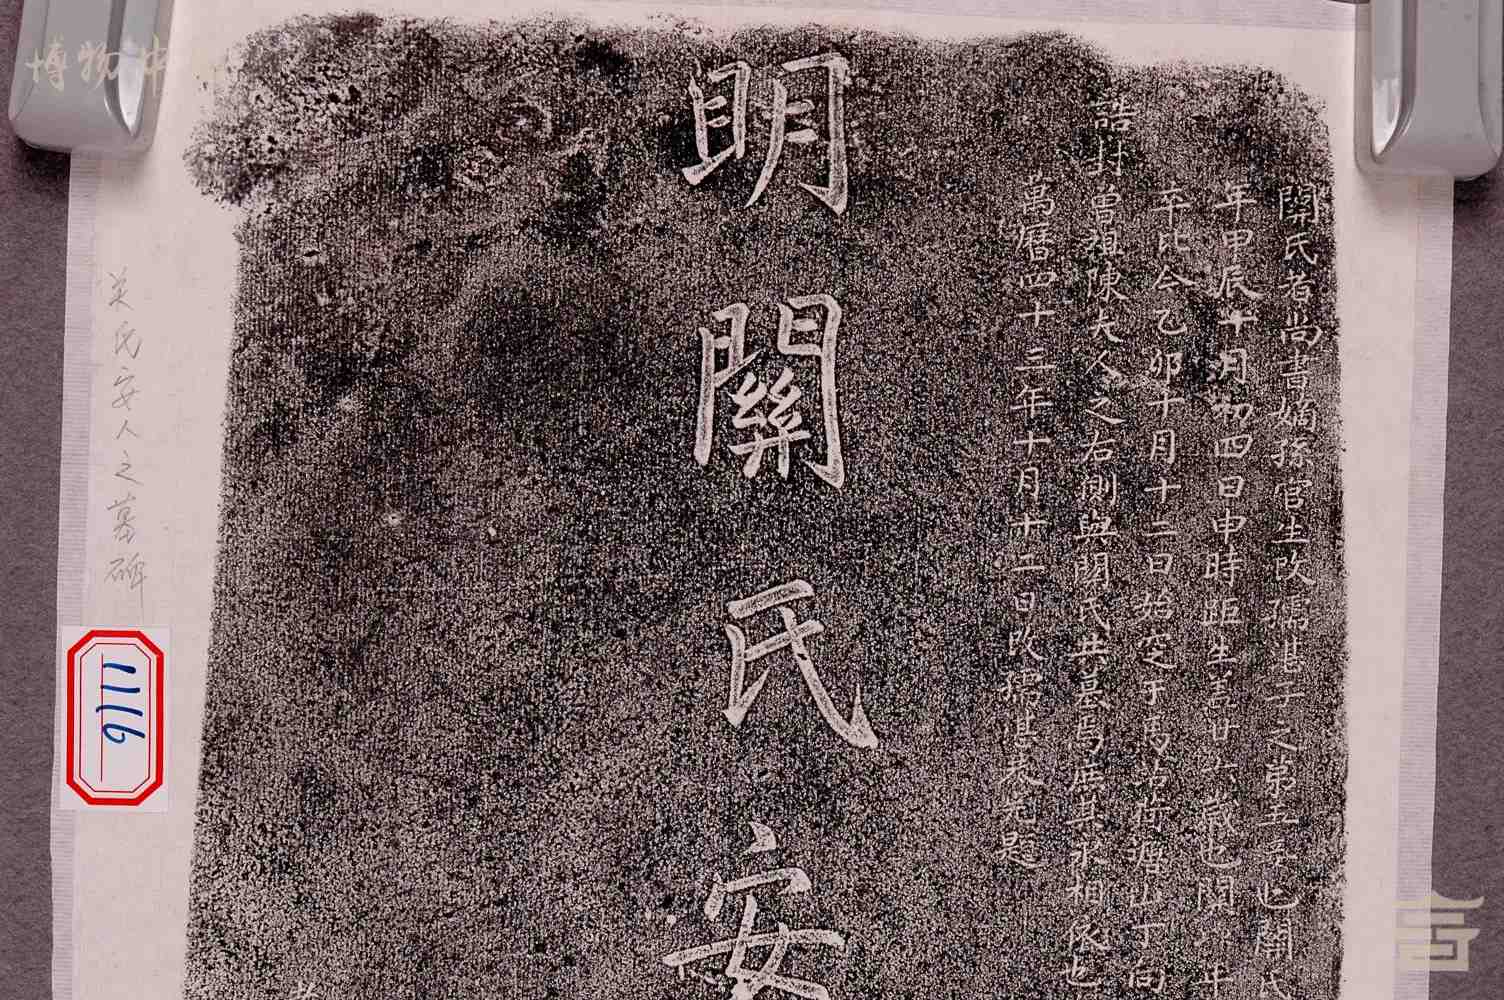 關氏者尚書嫡孫官生攺孺諶子之第五室也關氏
年甲辰十月初四日申時距生盖廿六歲也關 年
卒比今乙卯十月十二日始定于 山丁向
誥封曾祖陳夫人之右側與關氏生墓焉庶其永相依也
萬曆四十三年十月十二日攺孺諶 題
明關氏安
关氏安人之墓碑
1116
博物中